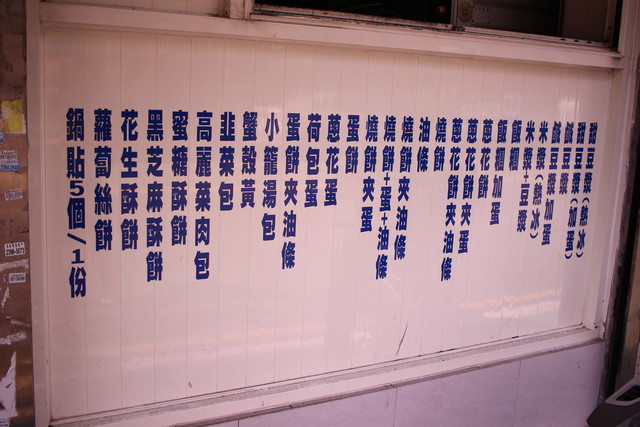 甜豆漿(熱冰)
甜豆漿(加蛋)
鹹豆漿(加蛋)
鹹豆漿加蛋
米漿(熱冰)
米漿+豆漿
飯糰
飯糰加蛋
蔥花餅
蔥花餅夾蛋
蔥花餅夾油條
燒餅
油條
燒餅夾油條
燒餅+蛋+油條
燒餅夾蛋
蛋餅
蔥花蛋
荷包蛋
蛋餅夾油條
小籠湯包
蟹殼黃
韭菜包
高麗菜肉包
蜜糖酥餅
黑芝麻酥餅
花生酥餅
蘿蔔絲餅
鍋貼5個/1份